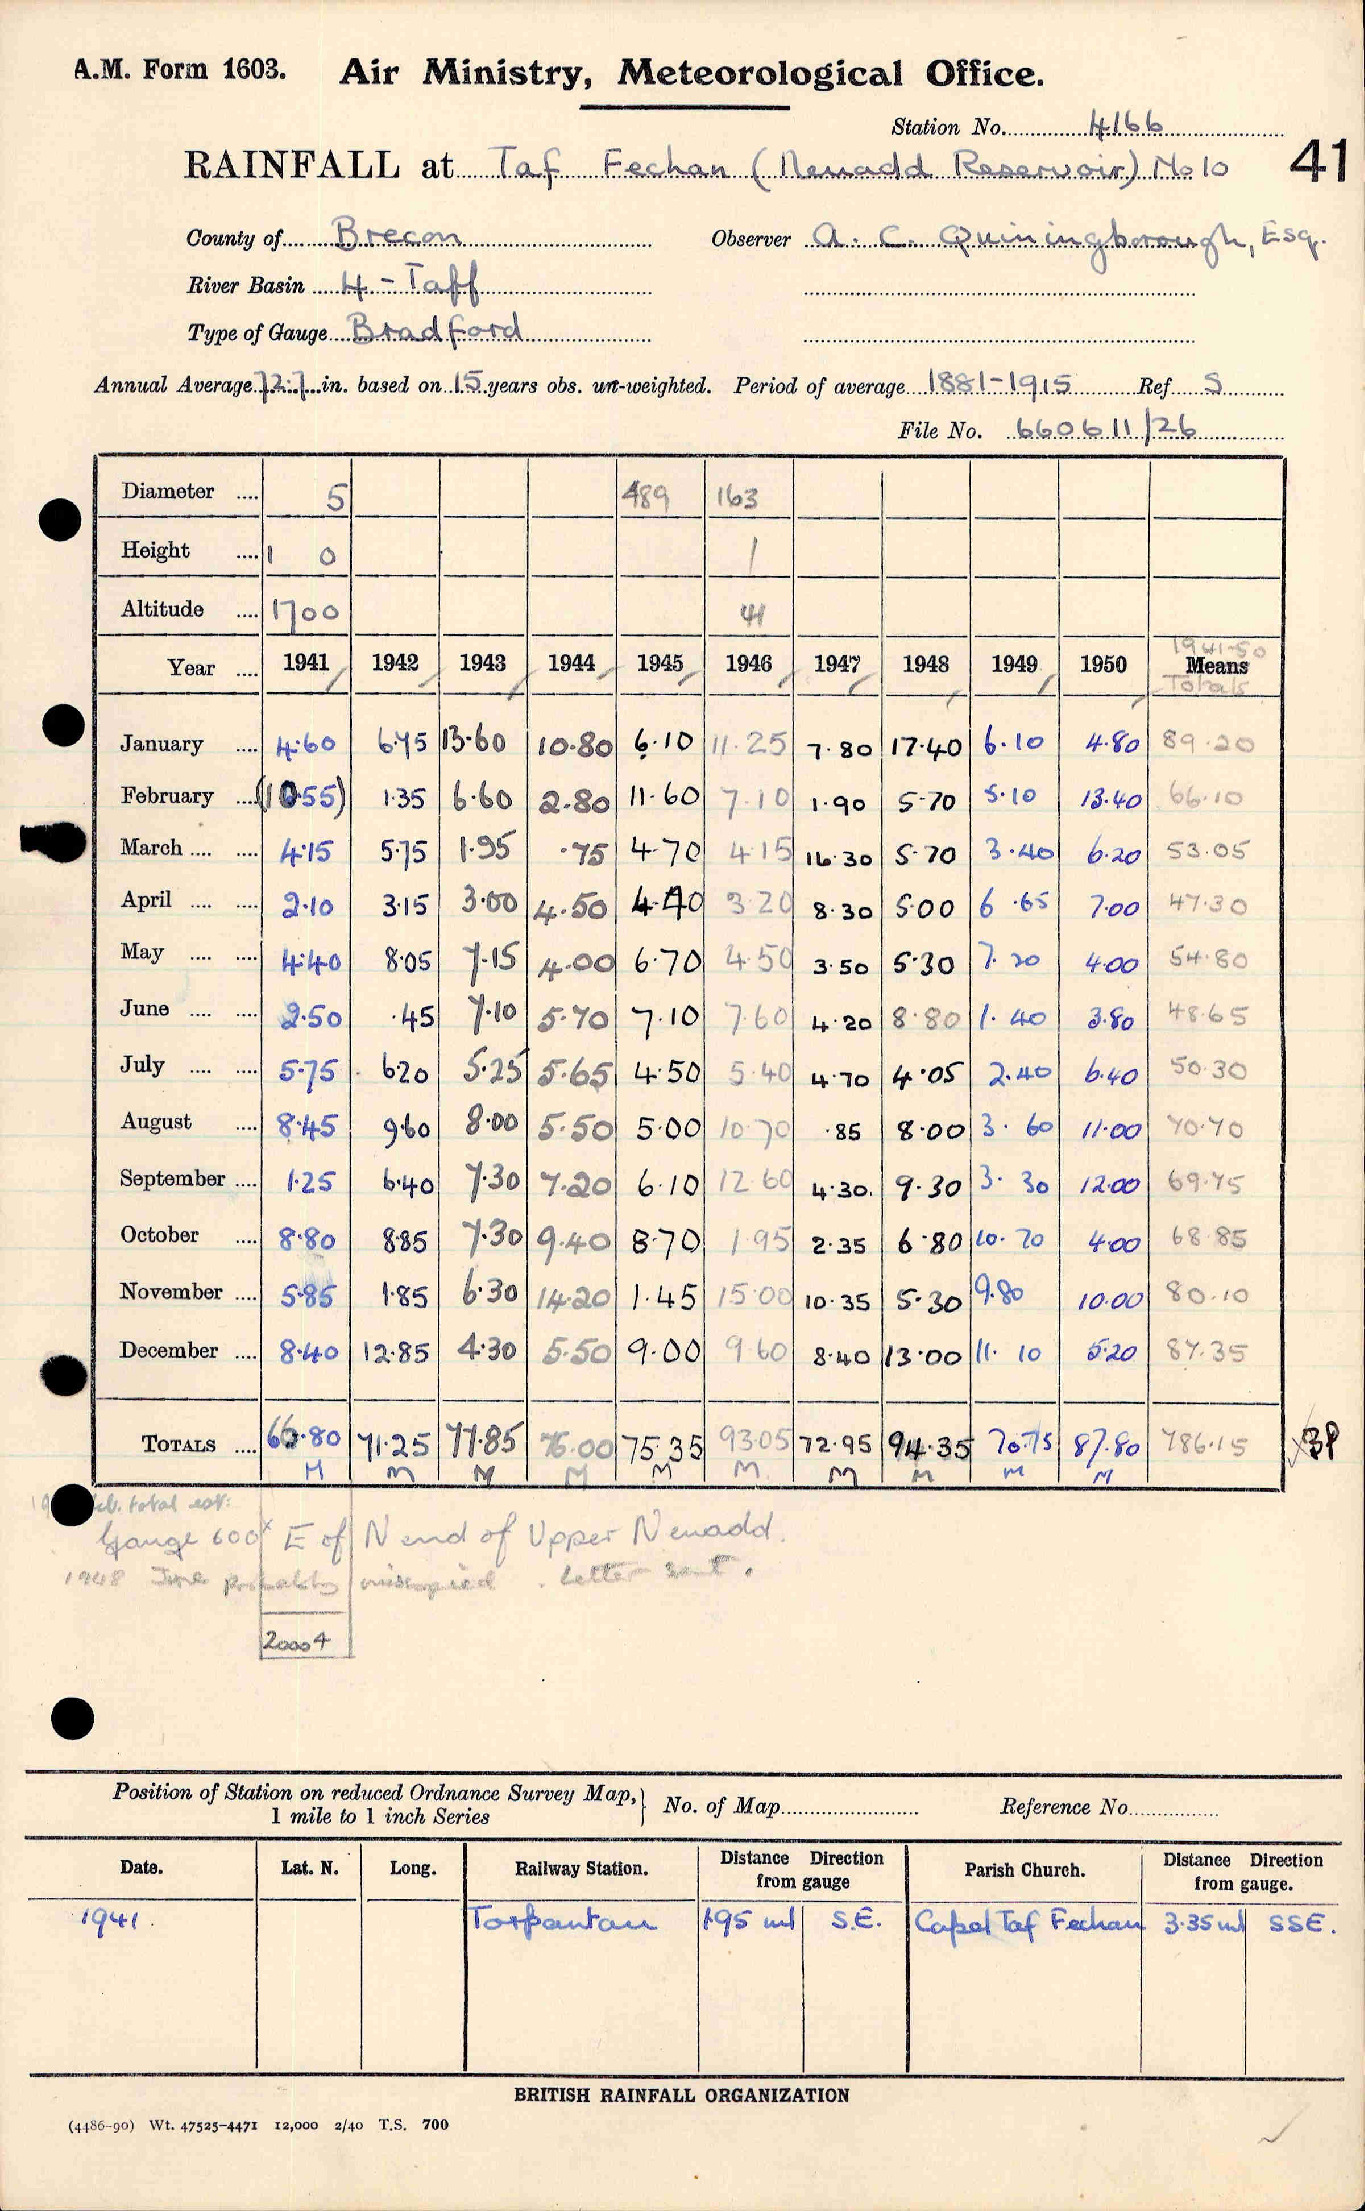 A.M. Form 1603. Air Ministry, Meteorological Office.
Station No. 4166
RAINFALL at Taf Fechan (Neuadd Reservoir) No 10
41
County of Brecon Observer A. C. Quiningborough, Esq.
River Basin 4 - Taff
Type of Gauge Bradford
Annual Average 72.7 in. based on 15 years obs. un-weighted. Period of average 1881-1915 Ref S
File No. 660611/26
Diameter .... 5 489 163
Height .... 1 0 1
Altitude .... 1700 41
Year .... 1941 1942 1943 1944 1945 1946 1947 1948 1949 1950 1941-50 Means Totals
January .... 4.60 6.45 13.60 10.80 6.10 11.25 7.80 17.40 6.10 4.80 89.20
February .... (10.55) 1.35 6.60 2.80 11.60 7.10 1.90 5.70 5.10 13.40 66.10
March .... .... 4.15 5.75 1.95 .75 4.70 4.15 16.30 5.70 3.40 6.20 53.05
April .... .... 2.10 3.15 3.00 4.50 4.40 3.20 8.30 5.00 6.65 7.00 47.30
May .... .... 4.40 8.05 7.15 4.00 6.70 4.50 3.50 5.30 7.20 4.00 54.80
June .... .... 2.50 .45 7.10 5.70 7.10 7.60 4.20 8.80 1.40 3.80 48.65
July .... .... 5.75 6.20 5.25 5.65 4.50 5.40 4.70 4.05 2.40 6.40 50.30
August .... 8.45 9.60 8.00 5.50 5.00 10.70 .85 8.00 3.60 11.00 70.70
September .... 1.25 6.40 7.30 7.20 6.10 12.60 4.30. 9.30 3.30 12.00 69.75
October .... 8.80 8.85 7.30 9.40 8.70 1.95 2.35 6.80 10.70 4.00 68.85
November .... 5.85 1.85 6.30 14.20 1.45 15.00 10.35 5.30 9.80 10.00 80.10
December .... 8.40 12.85 4.30 5.50 9.00 9.60 8.40 13.00 11.10 5.20 87.35
TOTALS .... 66.80 71.25 77.85 76.00 75.35 93.05 72.95 94.35 70.75 87.80 786.15
M M M M M M M M M M
Feb. total est:
Gauge 600x E of N end of Upper Neuadd.
1948 June probably miscopied. Letter sent.
20004
Position of Station on reduced Ordnance Survey Map, 1 mile to 1 inch Series } No. of Map Reference No.
Date. Lat. N. Long. Railway Station. Distance Direction from gauge Parish Church. Distance Direction from gauge.
1941. Torpantau 1.95 ml S.E. Capel Taf Fechan 3.35 ml SSE.
BRITISH RAINFALL ORGANIZATION
(4486-90) Wt. 47525-4471 12,000 2/40 T.S. 700